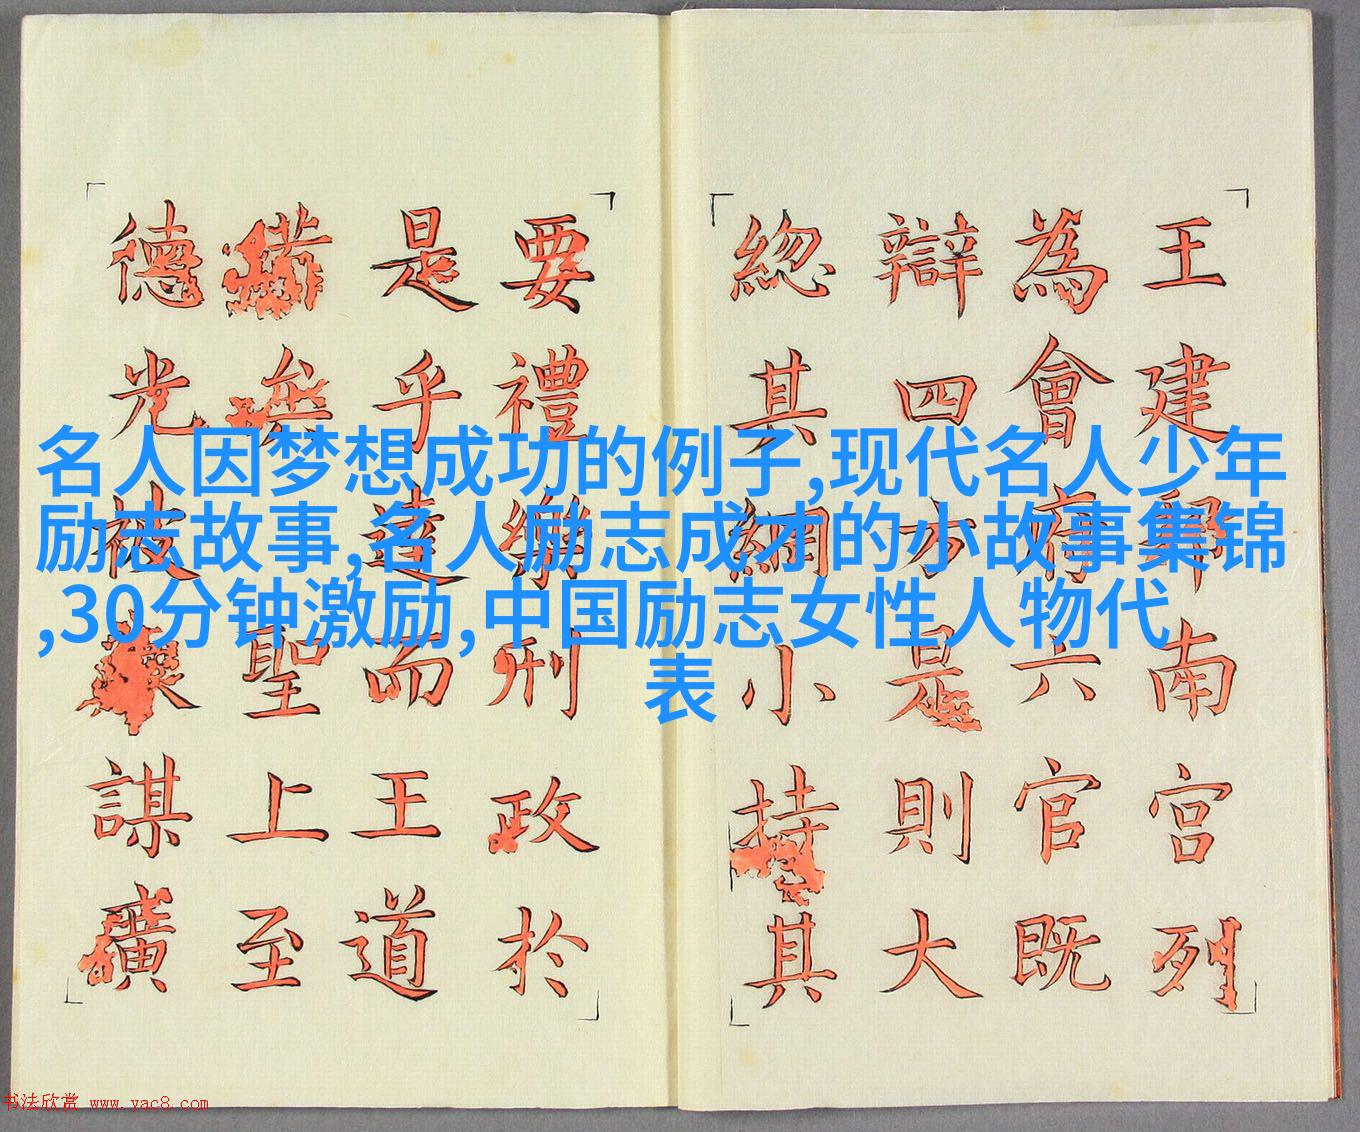 名人因梦想成功的例子,现代名人少年
励志故事,名人励志成才的小故事集锦
,30分钟激励,中国励志女性人物代
表
王建邦南宫列
為會府六官既
辯四方是則大
緫其綱小持其
要禮樂刑政於
是乎達而王道
備矣聖上至
德光被謀廣
书法欣赏 www.yac8.com